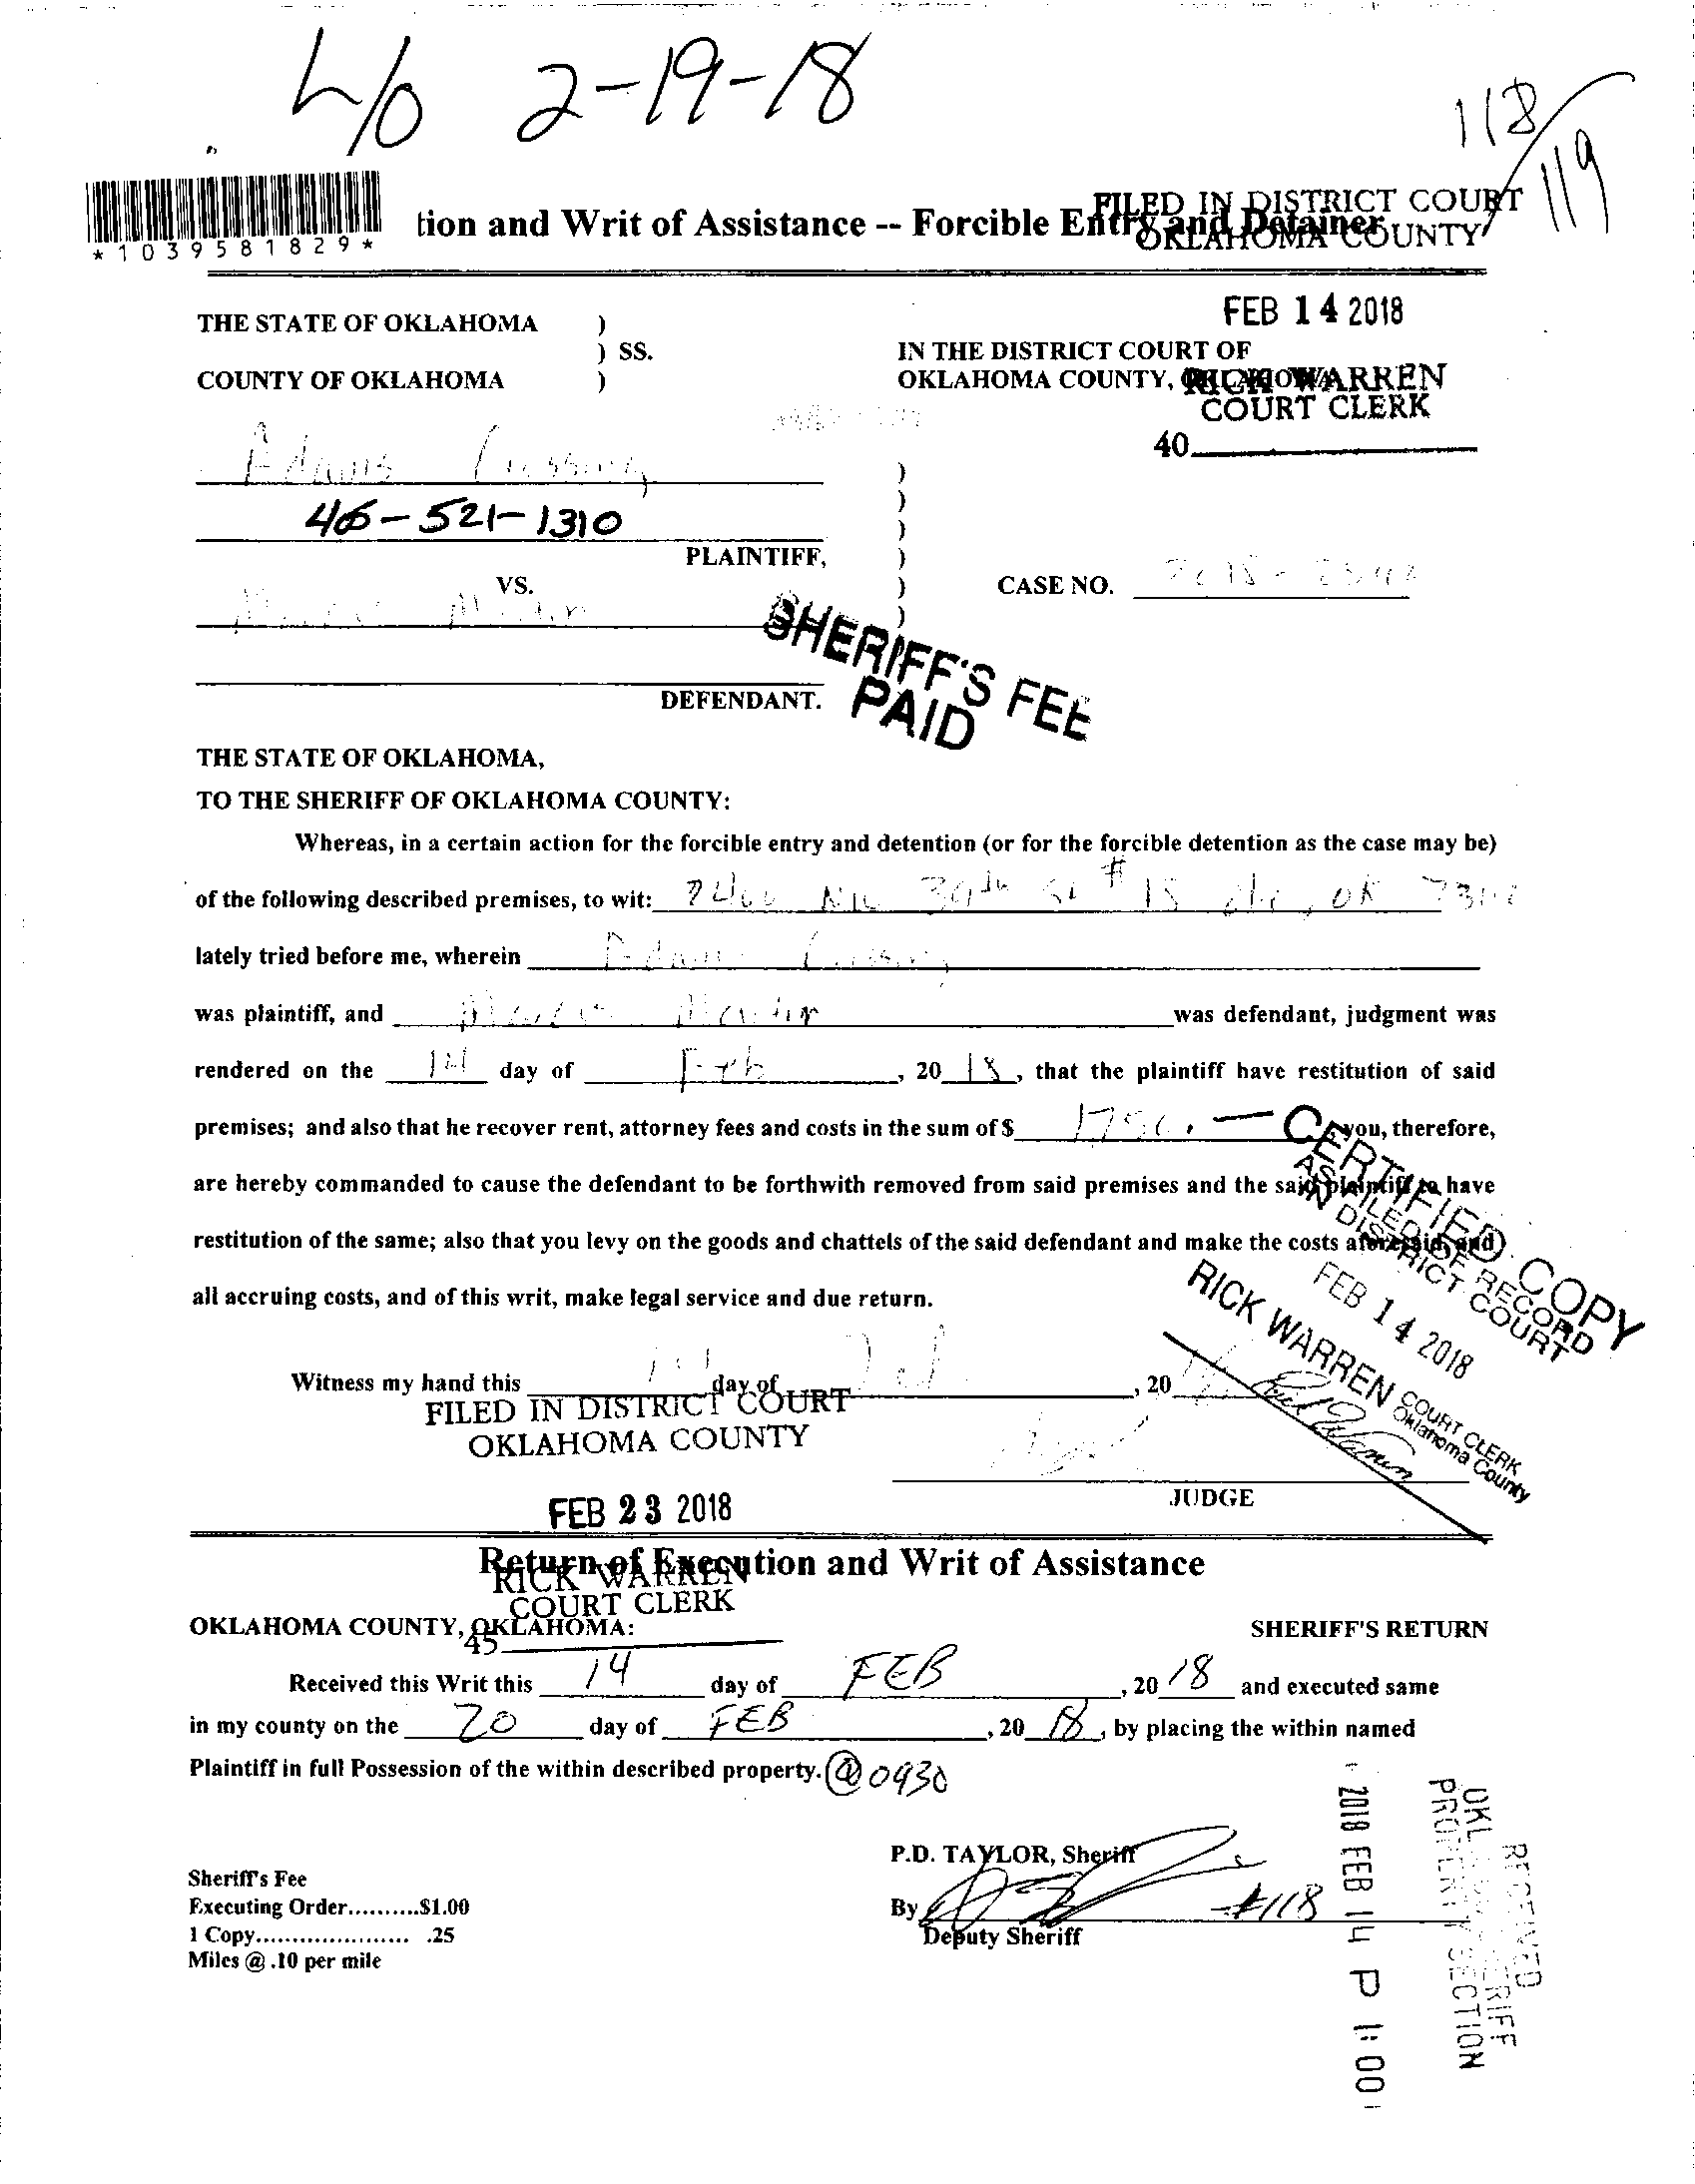 L/O 2-19-18
118/119
*1039581829*
tion and Writ of Assistance -- Forcible Entry and Detainer
FILED IN DISTRICT COURT
OKLAHOMA COUNTY
FEB 14 2018
RICK WARREN
COURT CLERK
40
THE STATE OF OKLAHOMA )
) SS.
COUNTY OF OKLAHOMA )
IN THE DISTRICT COURT OF
OKLAHOMA COUNTY, OKLAHOMA
Adams Crossing
405-521-1310
PLAINTIFF,
VS.
CASE NO. 2018-
SHERIFF'S FEE
PAID
DEFENDANT.
THE STATE OF OKLAHOMA,
TO THE SHERIFF OF OKLAHOMA COUNTY:
Whereas, in a certain action for the forcible entry and detention (or for the forcible detention as the case may be)
of the following described premises, to wit: NW 39th St # 15 okc, OK
lately tried before me, wherein Adams Crossing
was plaintiff, and was defendant, judgment was
rendered on the 14 day of Feb, 2018, that the plaintiff have restitution of said
premises; and also that he recover rent, attorney fees and costs in the sum of $ you, therefore,
are hereby commanded to cause the defendant to be forthwith removed from said premises and the said plaintiff to have
restitution of the same; also that you levy on the goods and chattels of the said defendant and make the costs aforesaid, and
all accruing costs, and of this writ, make legal service and due return.
CERTIFIED COPY
AS FILED OF RECORD
IN DISTRICT COURT
FEB 14 2018
RICK WARREN COURT CLERK
Oklahoma County
Rick Warren
Witness my hand this 14 day of Feb, 20 18
FILED IN DISTRICT COURT
OKLAHOMA COUNTY
JUDGE
FEB 23 2018
Return of Execution and Writ of Assistance
RICK WARREN
COURT CLERK
45
OKLAHOMA COUNTY, OKLAHOMA:
SHERIFF'S RETURN
Received this Writ this 14 day of FEB, 20 18 and executed same
in my county on the 20 day of FEB, 20 18, by placing the within named
Plaintiff in full Possession of the within described property. @ 0930
P.D. TAYLOR, Sheriff
By #118
Deputy Sheriff
Sheriff's Fee
Executing Order..........$1.00
1 Copy..................... .25
Miles @ .10 per mile
2018 FEB 14 P 1:00
RECEIVED
OKL SHERIFF
PROPERTY SECTION